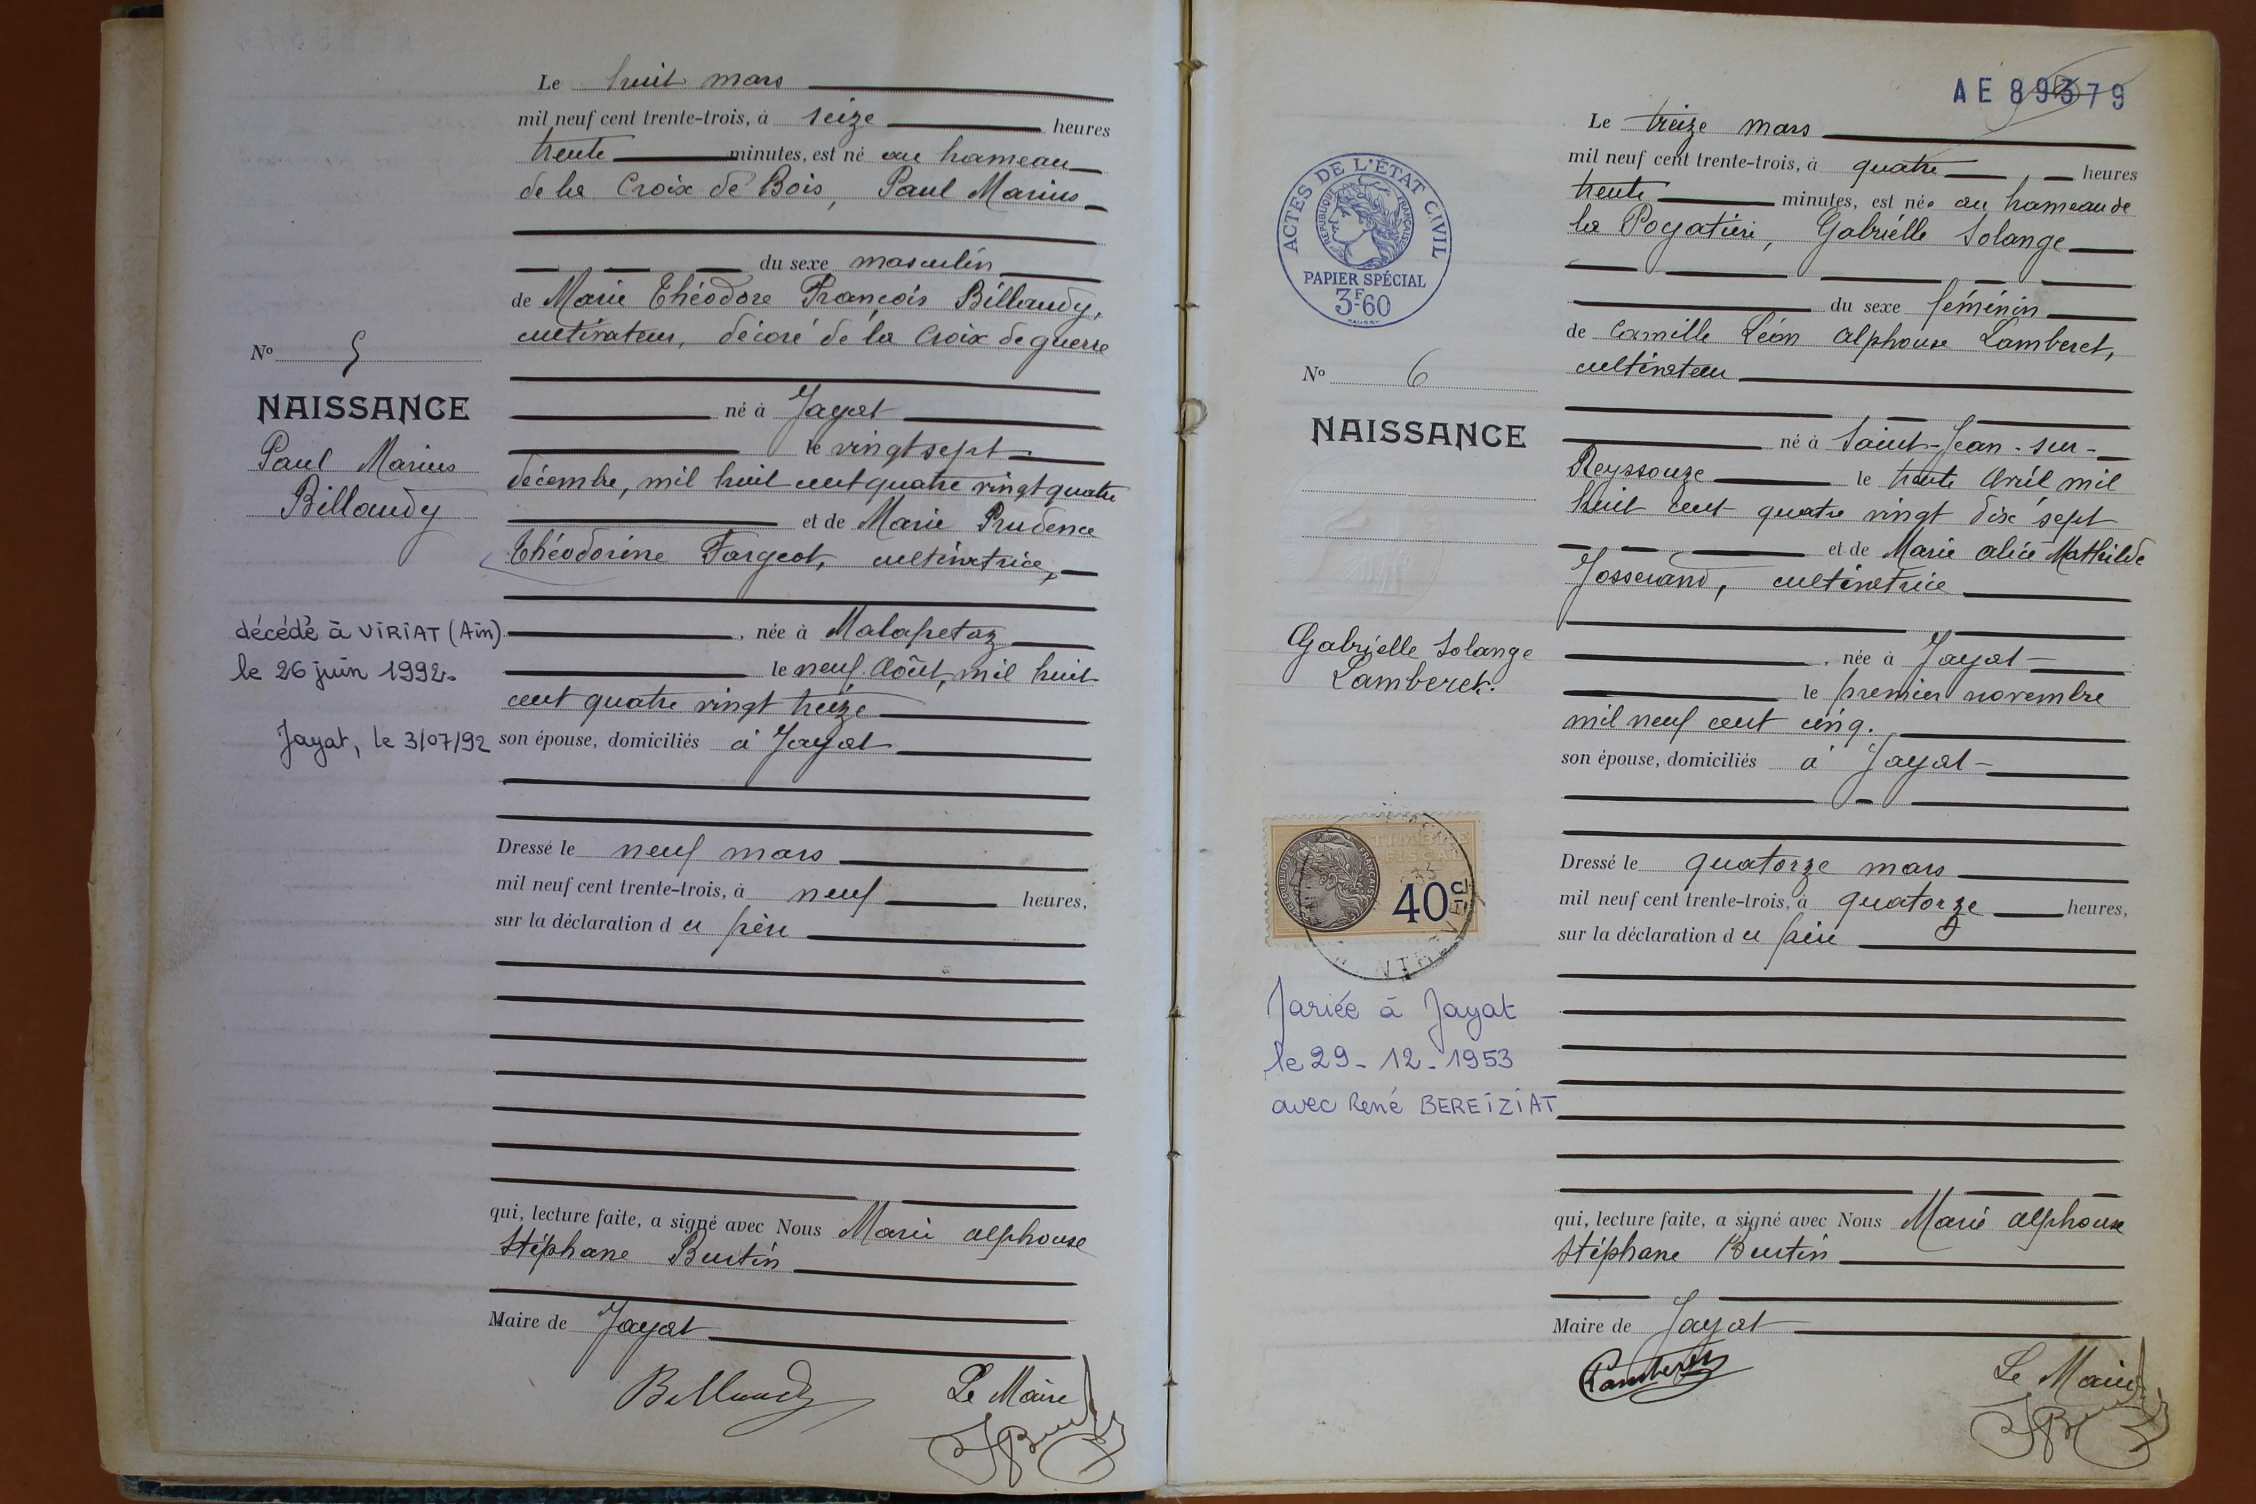 Le huit mars
mil neuf cent trente-trois, à seize heures
trente minutes, est né au hameau
de la Croix de Bois, Paul Marius
du sexe masculin
de Marie Théodore François Billaudy,
cultivateur, décoré de la Croix de guerre
né à Jayat
le vingt sept
décembre, mil huit cent quatre vingt quatre
et de Marie Prudence
Théodorine Fargeot, cultivatrice,
, née à Malafretaz
le neuf Août, mil huit
cent quatre vingt treize
son épouse, domiciliés à Jayat
Dressé le neuf mars
mil neuf cent trente-trois, à neuf heures,
sur la déclaration du père
qui, lecture faite, a signé avec Nous Marie Alphonse
Stéphane Burtin
Maire de Jayat
Billaudy Le Maire
No 5
NAISSANCE
Paul Marius
Billaudy
décédé à VIRIAT (Ain)
le 26 juin 1992.
Jayat, le 3/07/92
AE 89379
Le treize mars
mil neuf cent trente-trois, à quatre heures
trente minutes, est née au hameau de
la Pogatière, Gabriélle Solange
du sexe féminin
de Camille Léon Alphonse Lamberet,
cultivateur
né à Saint-Jean-sur-
Reyssouze le trente Avril mil
huit cent quatre vingt dix sept
et de Marie Alice Mathilde
Josserand, cultivatrice
, née à Jayat
le premier novembre
mil neuf cent cinq.
son épouse, domiciliés à Jayat
Dressé le quatorze mars
mil neuf cent trente-trois, à quatorze heures,
sur la déclaration du père
qui, lecture faite, a signé avec Nous Marie Alphonse
Stéphane Burtin
Maire de Jayat
Lamberet Le Maire
ACTES DE L'ÉTAT CIVIL
RÉPUBLIQUE FRANÇAISE
PAPIER SPÉCIAL
3F60
No 6
NAISSANCE
Gabrielle Solange
Lamberet.
TIMBRE
FISCAL
40c
Mariée à Jayat
le 29-12-1953
avec René BEREIZIAT